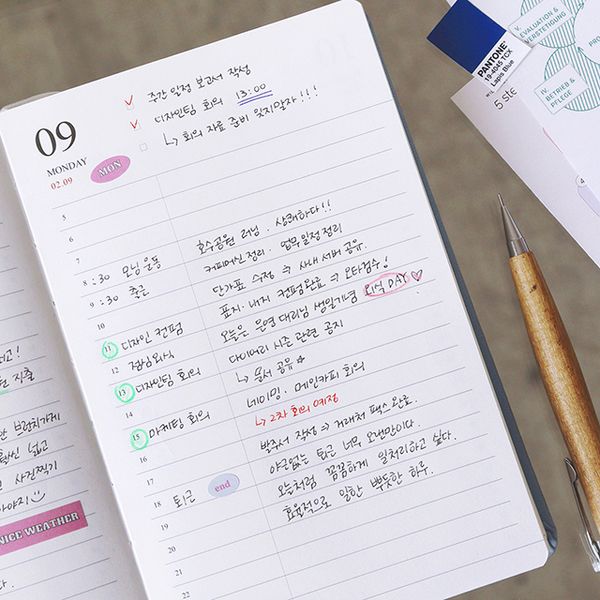 주간 일정 보고서 작성
디자인팀 회의 13:00
↳ 회의 자료 준비 잊지말자!!!
09
MONDAY
02.09
MON
5
6
7
호수공원 러닝. 상쾌하다!!
8:30 모닝운동
커피머신 정리. 업무일정정리
9:30 출근
단가표 수정 ⇒ 사내 서버 공유.
10
표지·내지 컨펌완료 ⇒ 오타검수!
11 디자인 컨펌
오늘은 운영 대리님 생일기념 회식 DAY ♡
12 점심외식
다이어리 시즌 관련 공지
13 디자인팀 회의
↳ 문서 공유☆
네이밍. 메인카피 회의
15 마케팅 회의
↳ 2차 회의 예정
16
발주서 작성 ⇒ 거래처 팩스완료.
17
야근없는 퇴근 너무 오랜만이다.
18 퇴근 end
오늘처럼 꼼꼼하게 일처리하고 싶다.
19
효율적으로 일한 뿌듯한 하루.
20
21
22
지출
브런치카페
넓고
사진찍기
NICE WEATHER
PANTONE
19-4045 TCX
Lapis Blue
V.
EVALUATION &
VERSTETIGUNG
IV.
BETRIEB &
PFLEGE
PRO
5 ste